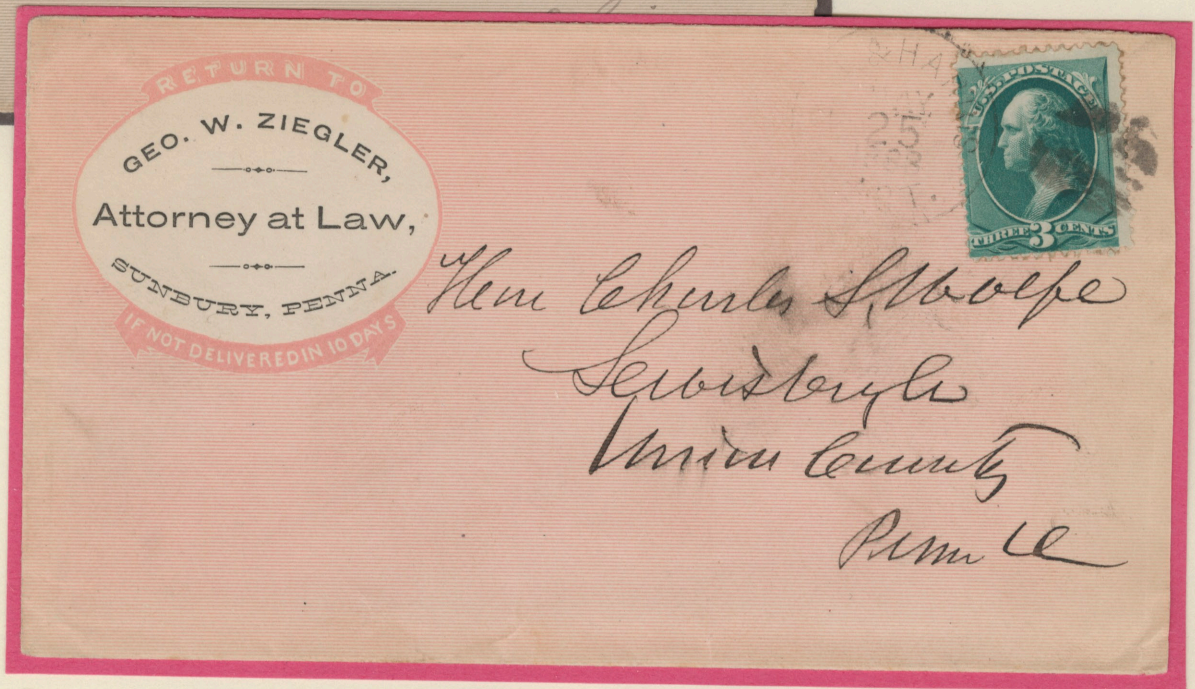 RETURN TO
GEO. W. ZIEGLER,
Attorney at Law,
SUNBURY, PENNA.
IF NOT DELIVERED IN 10 DAYS
& HA
25
U.S. POSTAGE
THREE 3 CENTS
Hon Charles S. Wolfe
Lewisburgh
Union County
Penn